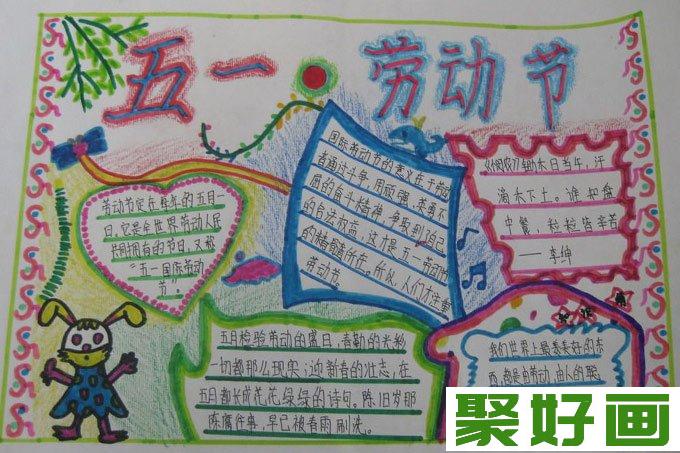 五一·劳动节
劳动节定在每年的五月一
日,它是全世界劳动人民
共同拥有的节日,又称
“五一国际劳动
节”。
国际劳动节的意义在于劳动
者通过斗争,用顽强、英勇不
屈的奋斗精神,争取到自己
的合法权益,这才是五一劳动节
的精髓所在。所以,人们才注重
劳动节。
《悯农》锄禾日当午,汗
滴禾下土。谁知盘
中餐,粒粒皆辛苦
——李绅
五月检验劳动的盛日,春勤的米粉
一切都那么现实;迎新春的壮志,在
五月都长成花花绿绿的诗句。陈旧岁那
陈腐往事,早已被春雨刷洗。
我们世界上最美好的东
西,都是由劳动、由人的聪
聚好画